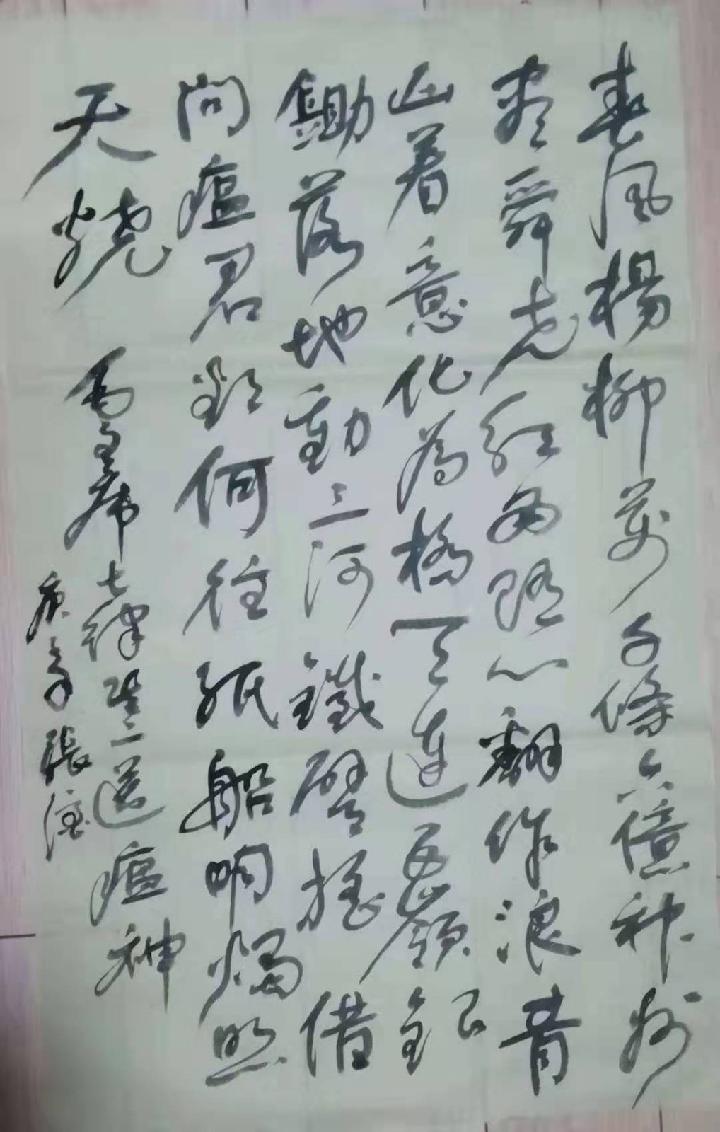 春风楊柳萬千條六億神州
盡舜尧紅雨随心翻作浪青
山着意化為橋天連五嶺銀
鋤落地動三河鐵臂摇借
问瘟君欲何往纸船明燭照
天烧
毛主席七律其二送瘟神
庚子張